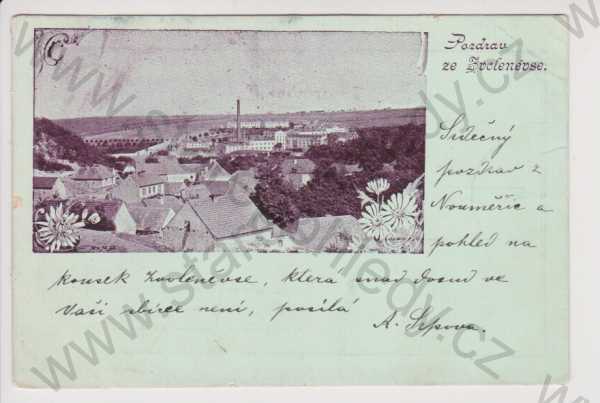 Pozdrav
ze Zvoleněvse.
Srdečný
pozdrav z
Nouměřic a
pohled na
kousek Zvoleněvse, ktera snad dosud ve
Vaší sbírce není, posílá
A.
www.stare-pohledy.cz